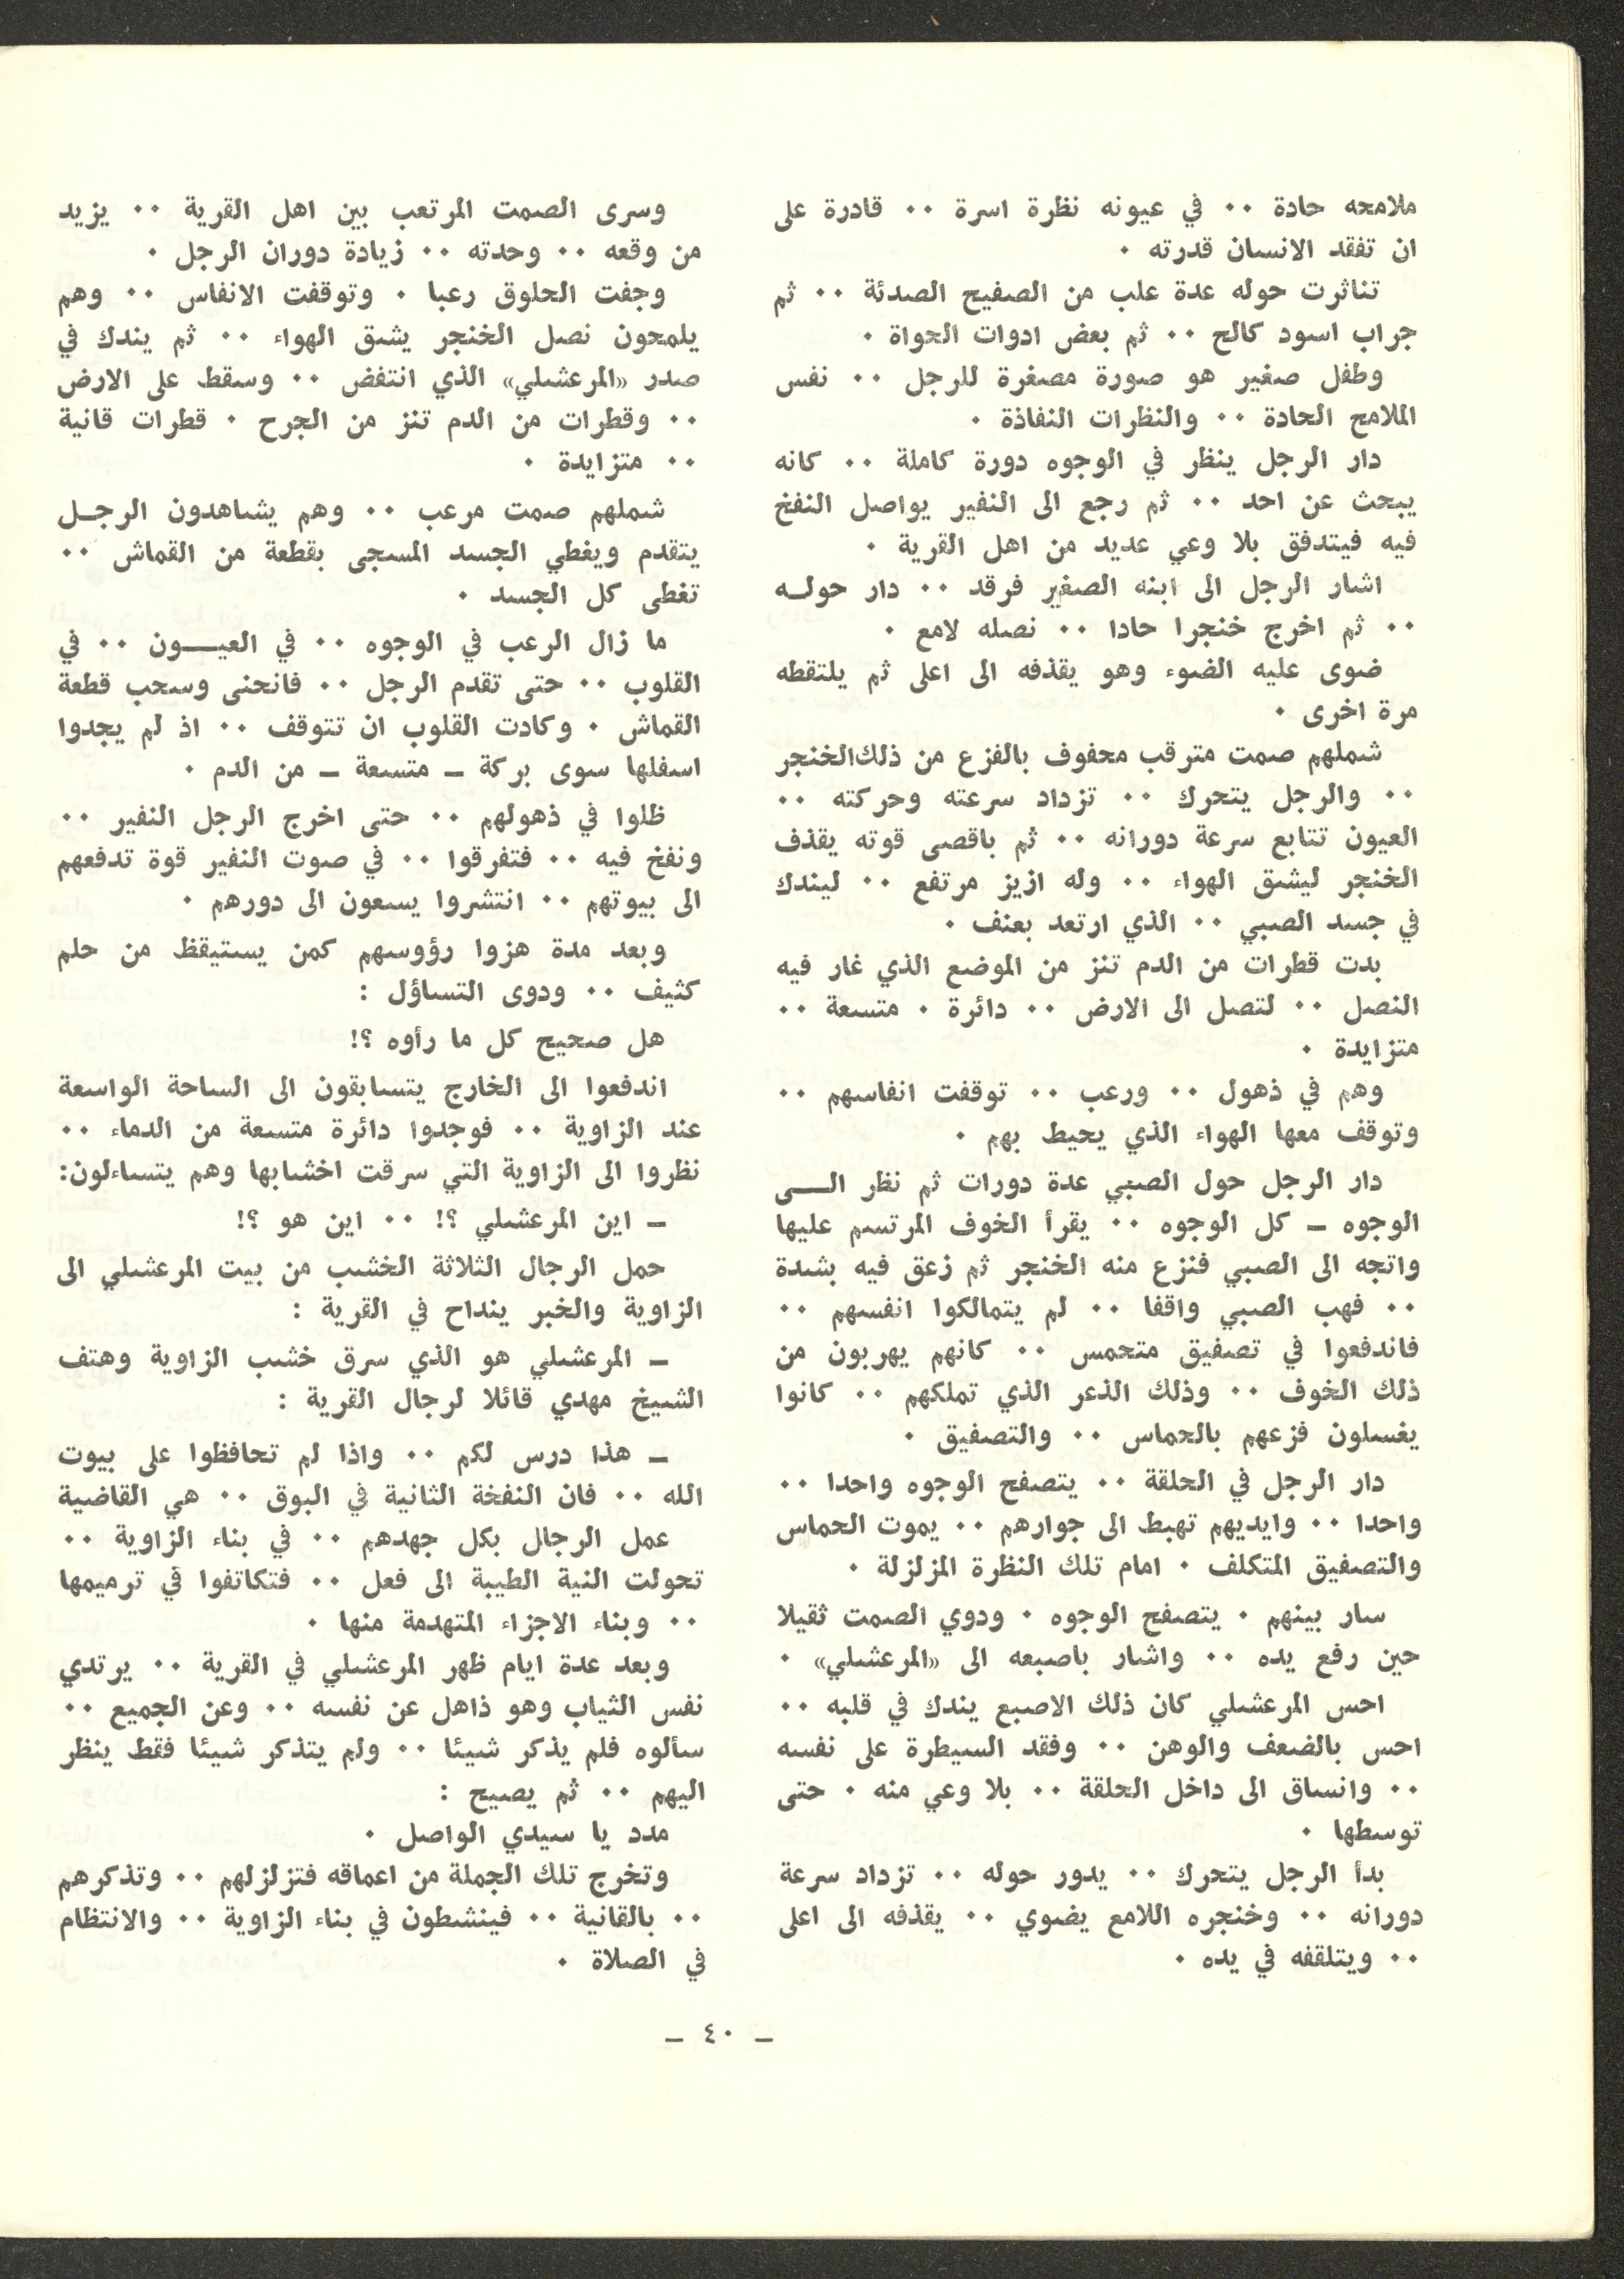 ملامحه حادة ٠٠ في عيونه نظرة اسرة ٠٠ قادرة على
ان تفقد الانسان قدرته ٠
تناثرت حوله عدة علب من الصفيح الصدئة ٠٠ ثم
جراب اسود كالح ٠٠ ثم بعض ادوات الحواة ٠
وطفل صغير هو صورة مصغرة للرجل ٠٠ نفس
الملامح الحادة ٠٠ والنظرات النفاذة ٠
دار الرجل ينظر في الوجوه دورة كاملة ٠٠ كانه
يبحث عن احد ٠٠ ثم رجع الى النفير يواصل النفخ
فيه فيتدفق بلا وعي عديد من اهل القرية ٠
اشار الرجل الى ابنه الصغير فرقد ٠٠ دار حولـه
٠٠ ثم اخرج خنجرا حادا ٠٠ نصله لامع ٠
ضوى عليه الضوء وهو يقذفه الى اعلى ثم يلتقطه
مرة اخرى ٠
شملهم صمت مترقب محفوف بالفزع من ذلك الخنجر
٠٠ والرجل يتحرك ٠٠ تزداد سرعته وحركته ٠٠
العيون تتابع سرعة دورانه ٠٠ ثم باقصى قوته يقذف
الخنجر ليشق الهواء ٠٠ وله ازيز مرتفع ٠٠ ليندك
في جسد الصبي ٠٠ الذي ارتعد بعنف ٠
بدت قطرات من الدم تنز من الموضع الذي غار فيه
النصل ٠٠ لتصل الى الارض ٠٠ دائرة ٠ متسعة ٠٠
متزايدة ٠
وهم في ذهول ٠٠ ورعب ٠٠ توقفت انفاسهم ٠٠
وتوقف معها الهواء الذي يحيط بهم ٠
دار الرجل حول الصبي عدة دورات ثم نظر الــى
الوجوه ــ كل الوجوه ٠٠ يقرأ الخوف المرتسم عليها
واتجه الى الصبي فنزع منه الخنجر ثم زعق فيه بشدة
٠٠ فهب الصبي واقفا ٠٠ لم يتمالكوا انفسهم ٠٠
فاندفعوا في تصفيق متحمس ٠٠ كانهم يهربون من
ذلك الخوف ٠٠ وذلك الذعر الذي تملكهم ٠٠ كانوا
يغسلون فزعهم بالحماس ٠٠ والتصفيق ٠
دار الرجل في الحلقة ٠٠ يتصفح الوجوه واحدا ٠٠
واحدا ٠٠ وايديهم تهبط الى جوارهم ٠٠ يموت الحماس
والتصفيق المتكلف ٠ امام تلك النظرة المزلزلة ٠
سار بينهم ٠ يتصفح الوجوه ٠ ودوي الصمت ثقيلا
حين رفع يده ٠٠ واشار باصبعه الى «المرعشلي» ٠
احس المرعشلي كان ذلك الاصبع يندك في قلبه ٠٠
احس بالضعف والوهن ٠٠ وفقد السيطرة على نفسه
٠٠ وانساق الى داخل الحلقة ٠٠ بلا وعي منه ٠ حتى
توسطها ٠
بدأ الرجل يتحرك ٠٠ يدور حوله ٠٠ تزداد سرعة
دورانه ٠٠ وخنجره اللامع يضوي ٠٠ يقذفه الى اعلى
٠٠ ويتلقفه في يده ٠
وسرى الصمت المرتعب بين اهل القرية ٠٠ يزيد
من وقعه ٠٠ وحدته ٠٠ زيادة دوران الرجل ٠
وجفت الحلوق رعبا ٠ وتوقفت الانفاس ٠٠ وهم
يلمحون نصل الخنجر يشق الهواء ٠٠ ثم يندك في
صدر «المرعشلي» الذي انتفض ٠٠ وسقط على الارض
٠٠ وقطرات من الدم تنز من الجرح ٠ قطرات قانية
٠٠ متزايدة ٠
شملهم صمت مرعب ٠٠ وهم يشاهدون الرجـل
يتقدم ويغطي الجسد المسجى بقطعة من القماش ٠٠
تغطى كل الجسد ٠
ما زال الرعب في الوجوه ٠٠ في العيــون ٠٠ في
القلوب ٠٠ حتى تقدم الرجل ٠٠ فانحنى وسحب قطعة
القماش ٠ وكادت القلوب ان تتوقف ٠٠ اذ لم يجدوا
اسفلها سوى بركة ــ متسعة ــ من الدم ٠
ظلوا في ذهولهم ٠٠ حتى اخرج الرجل النفير ٠٠
ونفخ فيه ٠٠ فتفرقوا ٠٠ في صوت النفير قوة تدفعهم
الى بيوتهم ٠٠ انتشروا يسعون الى دورهم ٠
وبعد مدة هزوا رؤوسهم كمن يستيقظ من حلم
كثيف ٠٠ ودوى التساؤل :
هل صحيح كل ما رأوه ؟!
اندفعوا الى الخارج يتسابقون الى الساحة الواسعة
عند الزاوية ٠٠ فوجدوا دائرة متسعة من الدماء ٠٠
نظروا الى الزاوية التي سرقت اخشابها وهم يتساءلون:
ــ اين المرعشلي ؟! ٠٠ اين هو ؟!
حمل الرجال الثلاثة الخشب من بيت المرعشلي الى
الزاوية والخبر ينداح في القرية :
ــ المرعشلي هو الذي سرق خشب الزاوية وهتف
الشيخ مهدي قائلا لرجال القرية :
ــ هذا درس لكم ٠٠ واذا لم تحافظوا على بيوت
الله ٠٠ فان النفخة الثانية في البوق ٠٠ هي القاضية
عمل الرجال بكل جهدهم ٠٠ في بناء الزاوية ٠٠
تحولت النية الطيبة الى فعل ٠٠ فتكاتفوا في ترميمها
٠٠ وبناء الاجزاء المتهدمة منها ٠
وبعد عدة ايام ظهر المرعشلي في القرية ٠٠ يرتدي
نفس الثياب وهو ذاهل عن نفسه ٠٠ وعن الجميع ٠٠
سألوه فلم يذكر شيئا ٠٠ ولم يتذكر شيئا فقط ينظر
اليهم ٠٠ ثم يصيح :
مدد يا سيدي الواصل ٠
وتخرج تلك الجملة من اعماقه فتزلزلهم ٠٠ وتذكرهم
٠٠ بالقانية ٠٠ فينشطون في بناء الزاوية ٠٠ والانتظام
في الصلاة ٠
ــ ٤٠ ــ